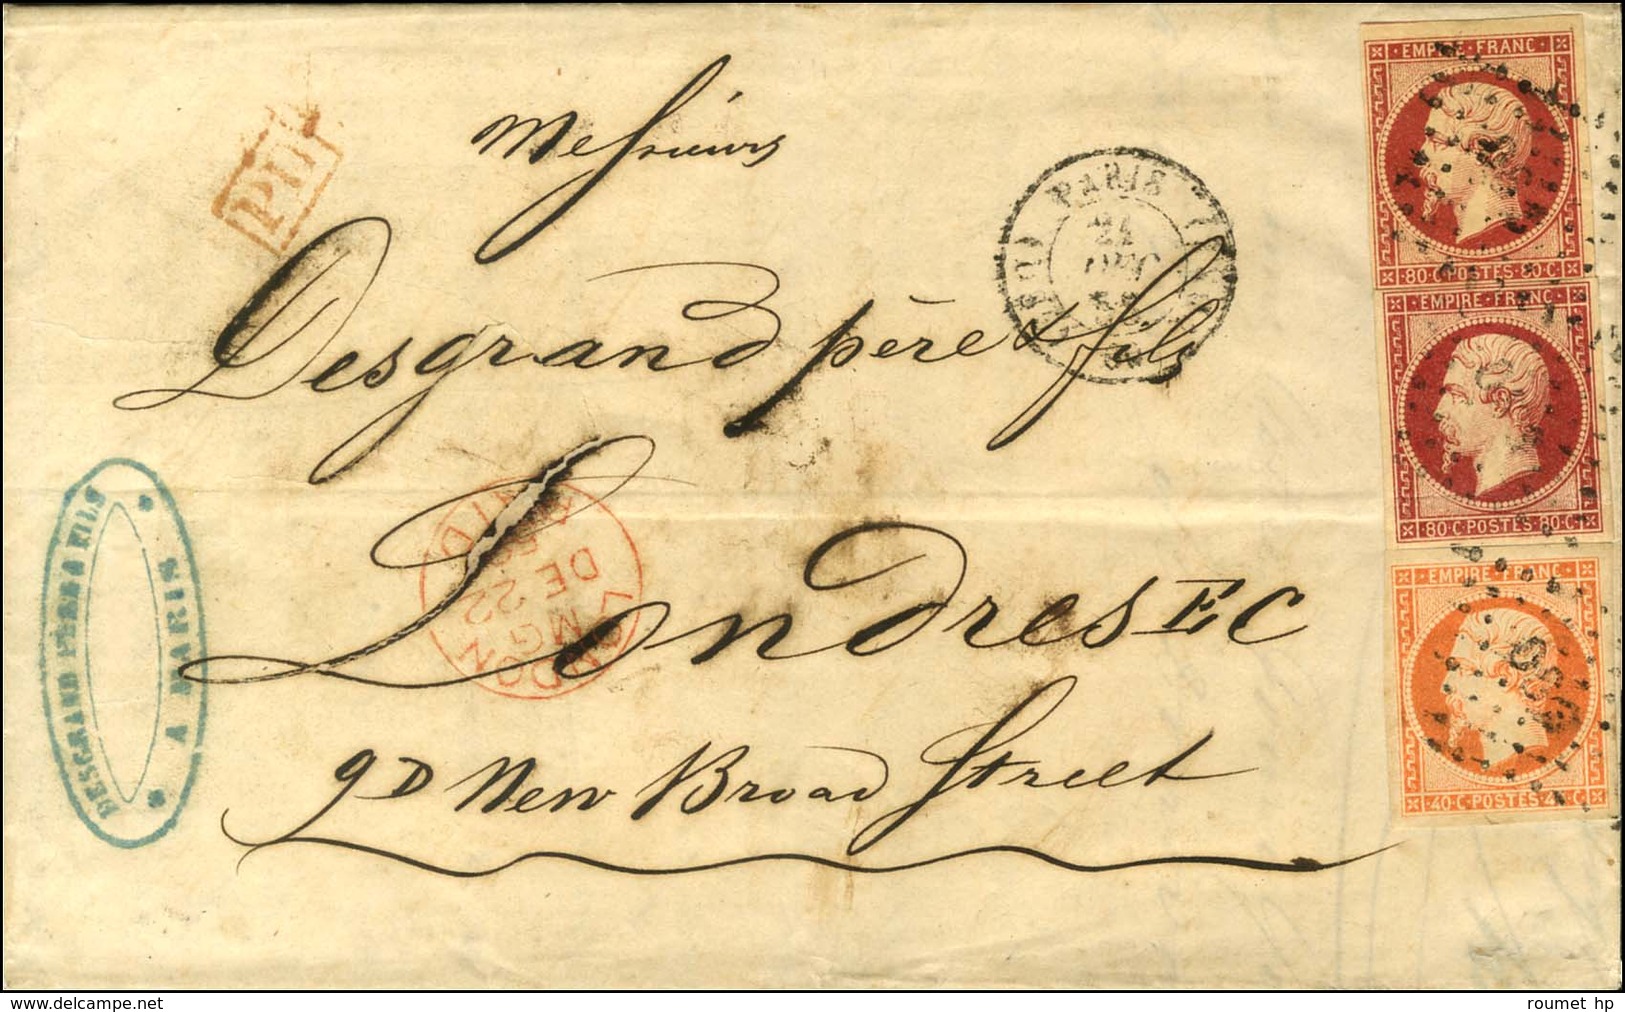 EMPIRE·FRANC
80·C·POSTES·80·C
EMPIRE·FRANC
80·C·POSTES·80·C
EMPIRE·FRANC
40·C·POSTES·40·C
PD
PARIS
21
DEC
Messieurs
Desgrand père & fils
Londres EC
9D New Broad Street
LONDON
MG
DE 22
PAID
DESGRAND PÈRE & FILS
A PARIS
www.delcampe.net
roumet hp